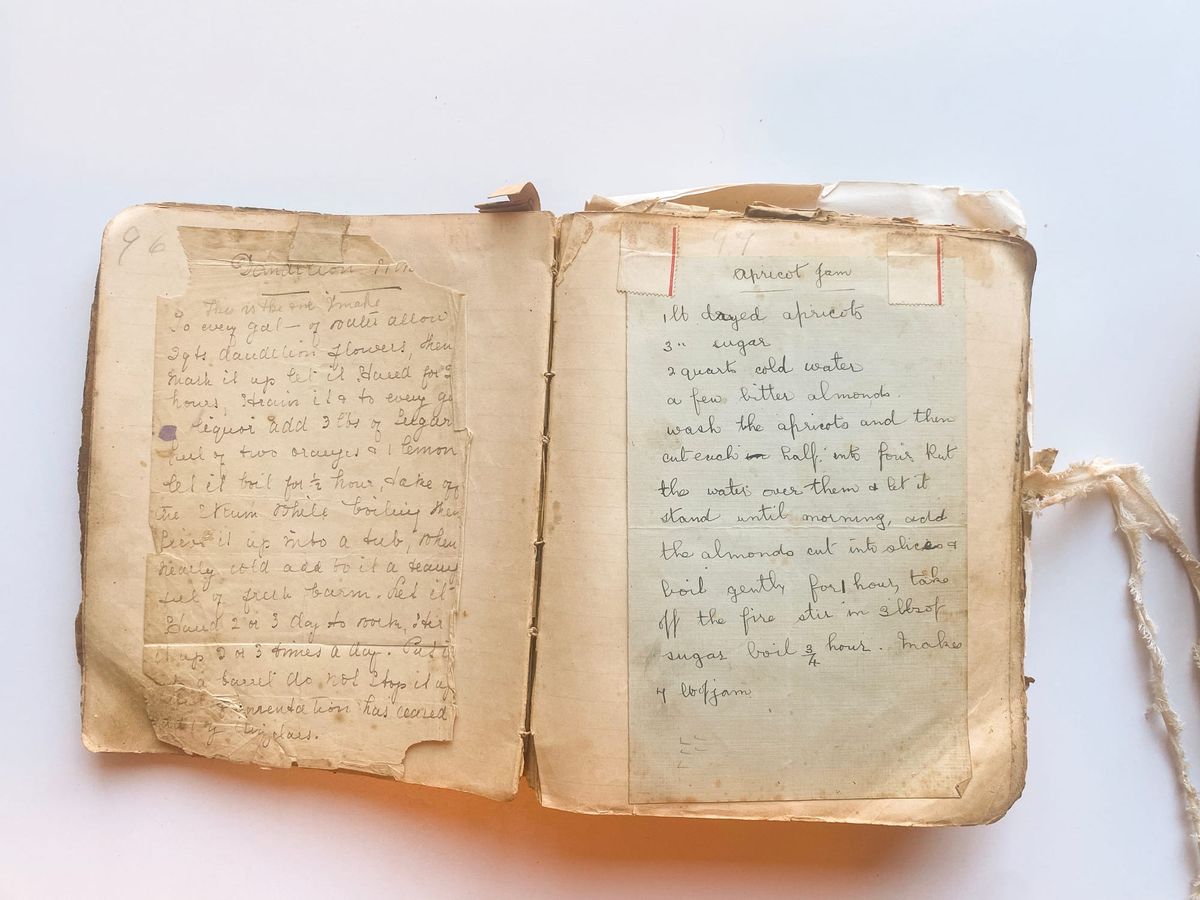 96
Dandelion
This is the one I make
To every gal - of water allow
2 qts dandelion flowers, then
mash it up let it stand for
hours, strain it & to every
liquor add 3 lbs of sugar
of two oranges & 1 lemon
let it boil for ½ hour, take off
the scum while boiling then
it up into a tub, when
nearly cold add to it a
of fresh barm. Let it
stand 2 or 3 day to work, stir
it up 2 or 3 times a day. Put
a barrel do not stop it
has ceased
97
Apricot Jam
1 lb drayed apricots
3 " sugar
2 quarts cold water
a few bitter almonds.
wash the apricots and then
cut each in half. into four. Put
the water over them & let it
stand until morning, add
the almonds cut into slices &
boil gently for 1 hour, take
off the fire stir in 3 lbs of
sugar boil ¾ hour. Makes
lb of jam